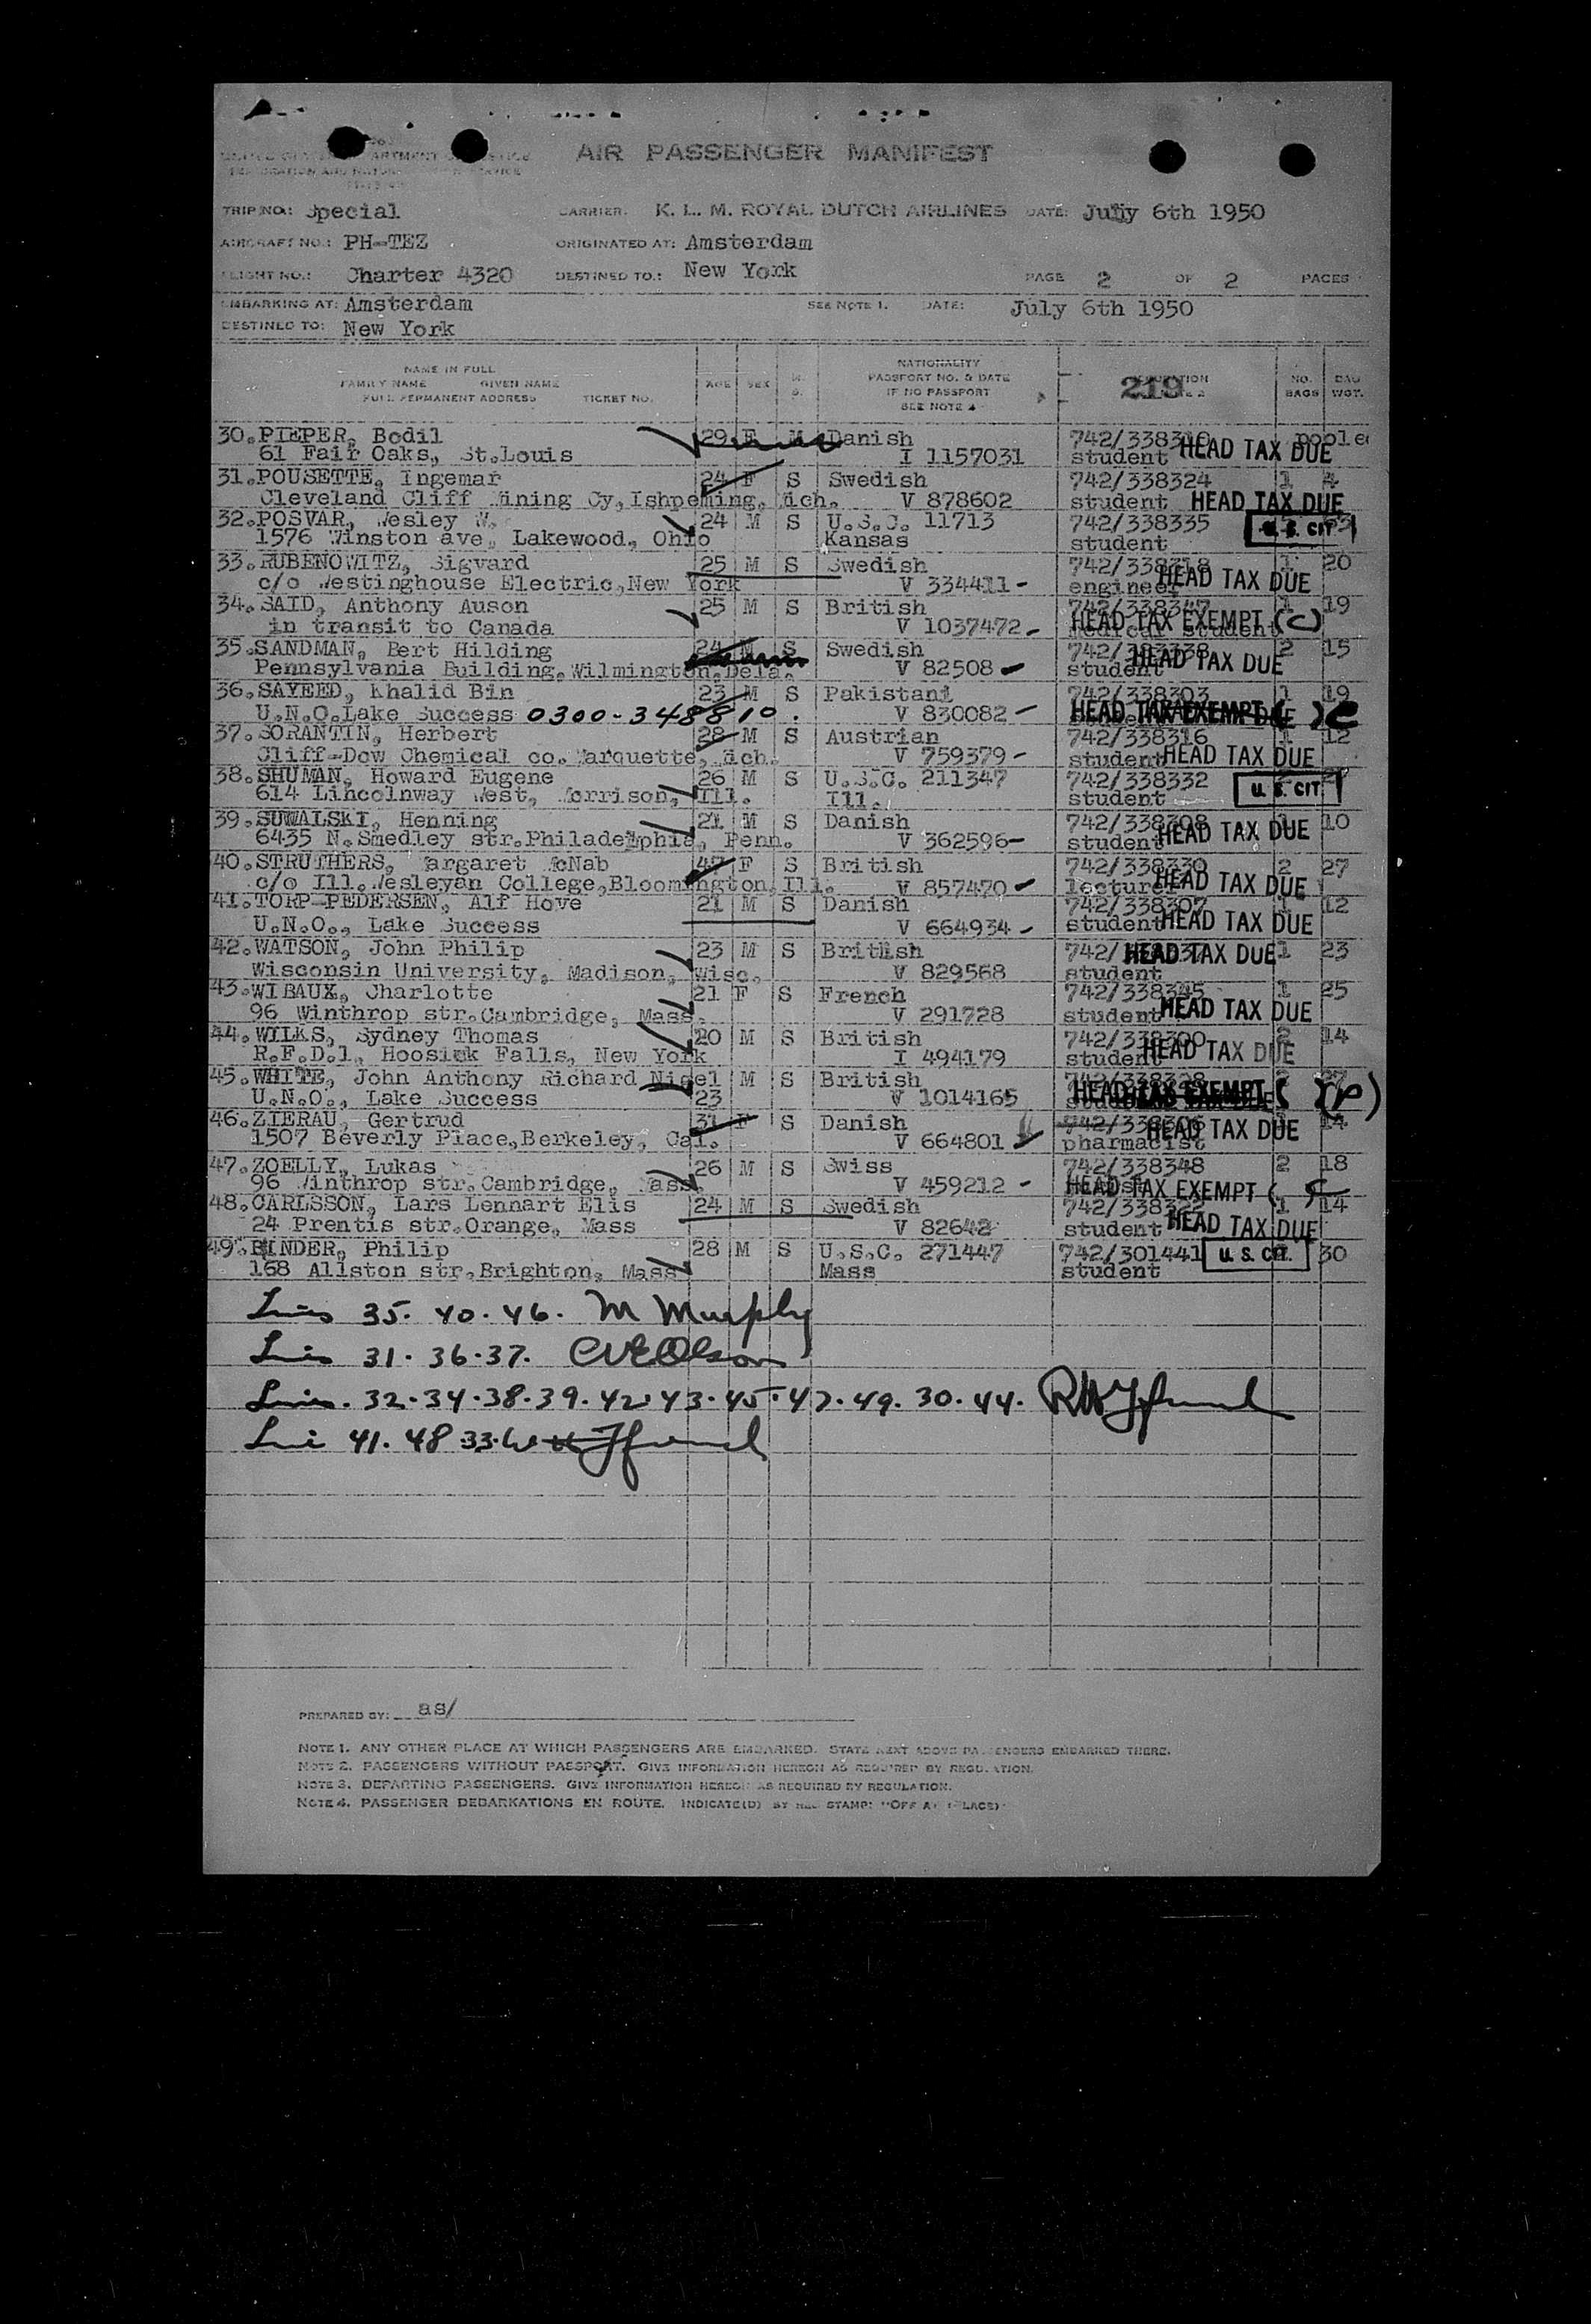 AIR PASSENGER MANIFEST
TRIP NO.: Special CARRIER: K. L. M. ROYAL DUTCH AIRLINES DATE: July 6th 1950
AIRCRAFT NO.: PH-TEZ ORIGINATED AT: Amsterdam
FLIGHT NO.: Charter 4320 DESTINED TO.: New York PAGE 2 OF 2 PAGES
EMBARKING AT: Amsterdam SEE NOTE 1. DATE: July 6th 1950
DESTINED TO: New York
NAME IN FULL NATIONALITY
FAMILY NAME GIVEN NAME AGE SEX M. PASSPORT NO. & DATE 219 NO. BAG
FULL PERMANENT ADDRESS TICKET NO. S. IF NO PASSPORT BAGS WGT.
SEE NOTE
30.PIEPER, Bodil 29 F M Danish
61 Fair Oaks, St.Louis I 1157031 student HEAD TAX DUE
31.POUSETTE, Ingemar 24 F S Swedish 742/338324 1 4
Cleveland Cliff Mining Cy,Ishpeming, Mich. V 878602 student HEAD TAX DUE
32.POSVAR, Wesley W. 24 M S U.S.C. 11713 742/338335 U. S. CIT
1576 Winston ave, Lakewood, Ohio Kansas student
33.RUBENOWITZ, Sigvard 25 M S Swedish 742/338318 1 20
c/o Westinghouse Electric,New York V 334411- engineer HEAD TAX DUE
34.SAID, Anthony Auson 25 M S British 742/338347 1 19
in transit to Canada V 1037472- medical student HEAD TAX EXEMPT (C)
35.SANDMAN, Bert Hilding 24 M S Swedish 742/338338 2 15
Pennsylvania Building,Wilmington,Dela. V 82508 student HEAD TAX DUE
36.SAYEED, Khalid Bin 23 M S Pakistani 742/338303 1 19
U.N.O.Lake Success 0300-348810. V 830082 - HEAD TAX EXEMPT ( ) C
37.SORANTIN, Herbert 28 M S Austrian 742/338316 1 12
Cliff-Dow Chemical co.Marquette, Mich. V 759379 - student HEAD TAX DUE
38.SHUMAN, Howard Eugene 26 M S U.S.C. 211347 742/338332
614 Lincolnway West, Morrison, Ill. Ill. student U. S. CIT
39.SUWALSKI, Henning 21 M S Danish 742/338308 1 10
6435 N.Smedley str.Philadelphia, Penn. V 362596- student HEAD TAX DUE
40.STRUTHERS, Margaret McNab 47 F S British 742/338330 2 27
c/o Ill.Wesleyan College,Bloomington,Ill. V 857470 lecturer HEAD TAX DUE
41.TORP-PEDERSEN, Alf Hove 21 M S Danish 742/338307 1 12
U.N.O., Lake Success V 664934 - student HEAD TAX DUE
42.WATSON, John Philip 23 M S British 742/ HEAD TAX DUE 1 23
Wisconsin University, Madison, Wisc. V 829568 student
43.WIBAUX, Charlotte 21 F S French 742/338345 1 25
96 Winthrop str.Cambridge, Mass. V 291728 student HEAD TAX DUE
44.WILKS, Sydney Thomas 20 M S British 742/338300 2 14
R.F.D.1, Hoosick Falls, New York I 494179 student HEAD TAX DUE
45.WHITE, John Anthony Richard Nigel M S British
U.N.O., Lake Success 23 V 1014165 HEAD TAX EXEMPT ( )
46.ZIERAU, Gertrud 31 F S Danish 14
1507 Beverly Place,Berkeley, Cal. V 664801 pharmacist HEAD TAX DUE
47.ZOELLY, Lukas 26 M S Swiss 742/338348 2 18
96 Winthrop str.Cambridge, Mass. V 459212 - HEAD TAX EXEMPT (
48.CARLSSON, Lars Lennart Elis 24 M S Swedish 742/338322 1 14
24 Prentis str.Orange, Mass V 82642 student HEAD TAX DUE
49.BINDER, Philip 28 M S U.S.C. 271447 742/301441 U. S. CIT. 30
168 Allston str,Brighton, Mass Mass student
Lines 35. 40. 46. M Murphy
Lines 31. 36. 37. CVEOlson
Lines. 32. 34. 38. 39. 42. 43. 45. 47. 49. 30. 44.
Line 41. 48 33.
PREPARED BY: as/
NOTE 1. ANY OTHER PLACE AT WHICH PASSENGERS ARE EMBARKED. STATE NEXT ABOVE PASSENGERS EMBARKED THERE.
NOTE 2. PASSENGERS WITHOUT PASSPORT. GIVE INFORMATION HEREON AS REQUIRED BY REGULATION.
NOTE 3. DEPARTING PASSENGERS. GIVE INFORMATION HEREON AS REQUIRED BY REGULATION.
NOTE 4. PASSENGER DEBARKATIONS EN ROUTE. INDICATE(D) BY STAMP: "OFF AT (PLACE)"